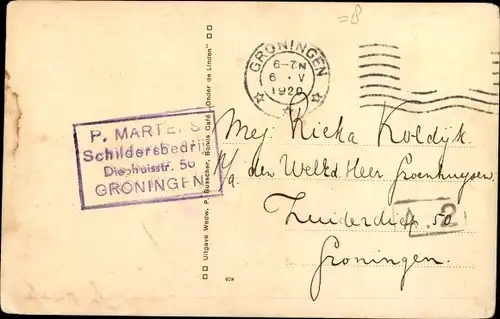 =8
GRONINGEN
6-7N
6 . V
1920
P. MARTENS
Schildersbedrij
Diephuisstr. 50
GRONINGEN
Uitgave Wedw. P. Busscher, Bonds Café „Onder de Linden"
Mej. Rieka Koldijk.
p/a. den WelEd Heer Groenhuysen
Zuiderdiep 50
A.2
Groningen.